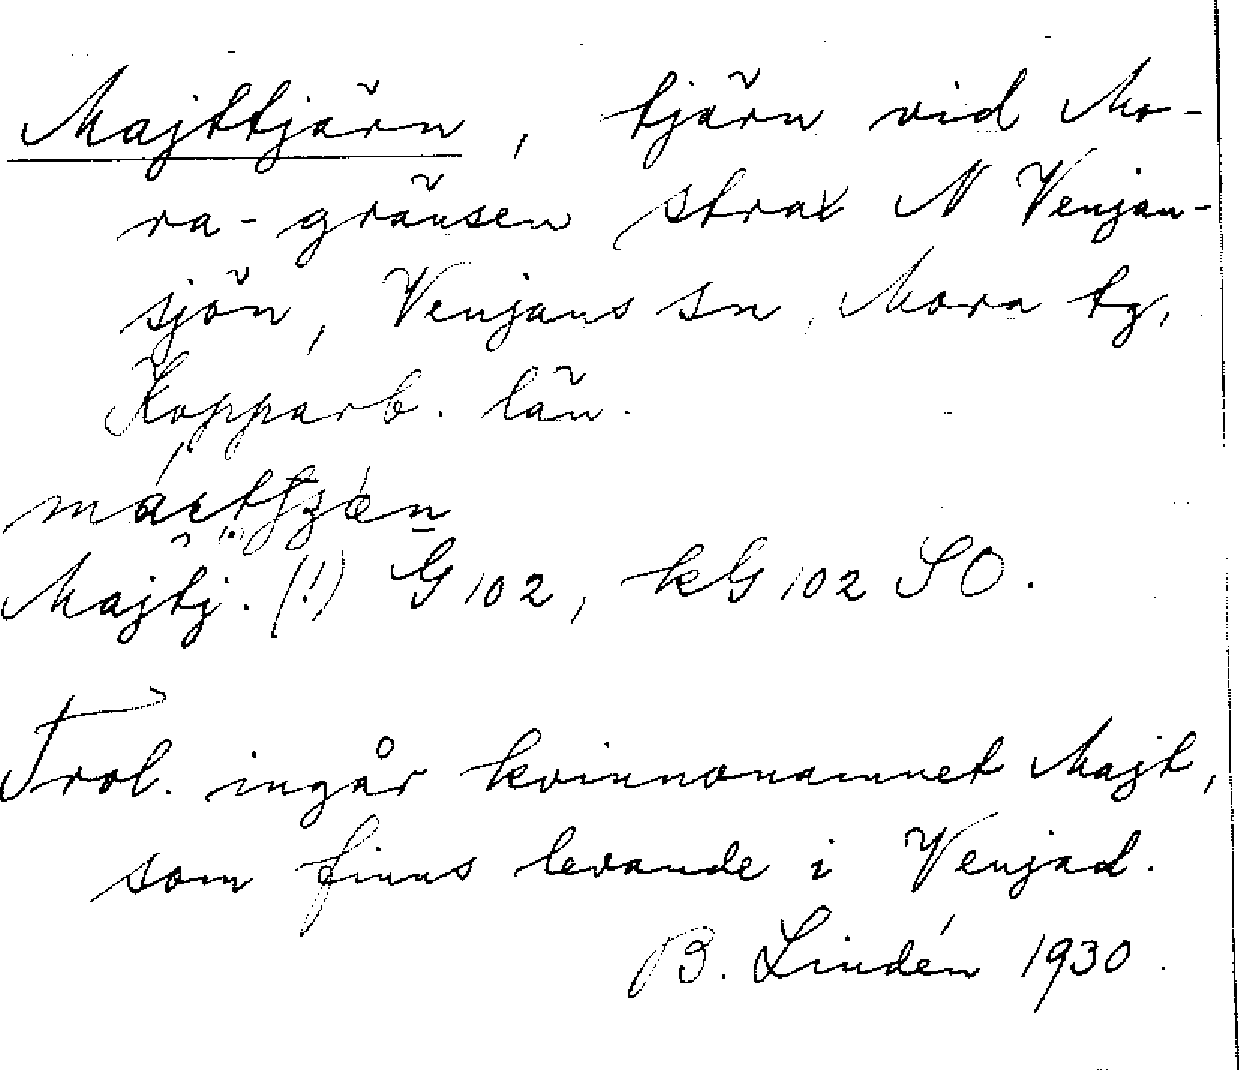 Majttjärn, tjärn vid Mo-
ra-gränsen strax N Venjan-
sjön, Venjans sn, Mora tg,
Kopparb. län.
Majtj. (!) G 102, kG 102 SO.
Trol. ingår kvinnonamnet Majt,
som finns levande i Venjad.
B. Lindén 1930.